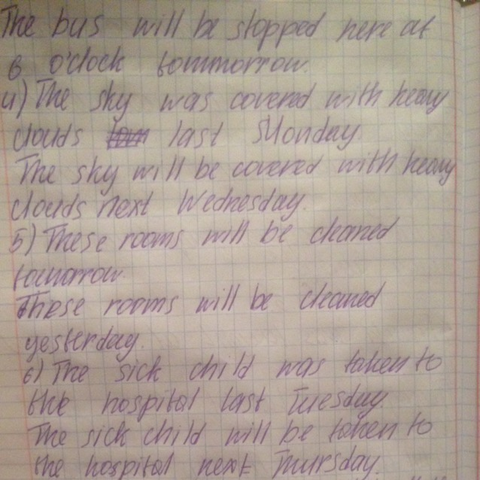 The bus will be stopped here at
6 o'clock tommorrow.
4) The sky was covered with heavy
clouds last Monday
The sky will be covered with heavy
clouds next Wednesday.
5) These rooms will be cleaned
tomorrow
These rooms will be cleaned
yesterday.
6) The sick child was taken to
the hospital last Tuesday.
The sick child will be taken to
the hospital next Thursday.